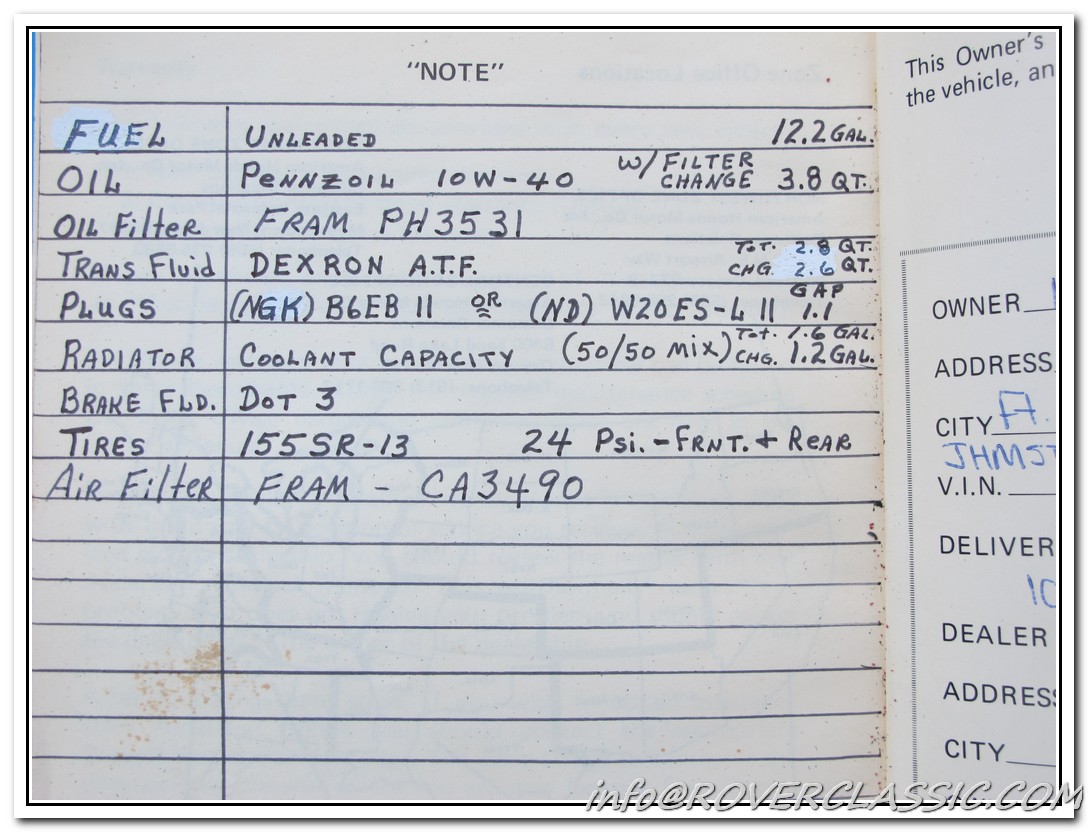 "NOTE"
FUEL UNLEADED 12.2 GAL.
OIL PENNZOIL 10W-40 W/ FILTER CHANGE 3.8 QT.
OIL Filter FRAM PH3531
TRANS Fluid DEXRON A.T.F. TOT. 2.8 QT.
CHG. 2.6 QT.
GAP
PLUGS (NGK) B6EB 11 OR (ND) W20ES-L 11 1.1
RADIATOR COOLANT CAPACITY (50/50 MIX) TOT. 1.6 GAL.
CHG. 1.2 GAL.
BRAKE FLD. DOT 3
TIRES 155SR-13 24 Psi. - FRNT. + REAR
Air Filter FRAM - CA3490
This Owner's
the vehicle, an
OWNER
ADDRESS
CITY
JHMS
V.I.N.
DELIVER
10
DEALER
ADDRESS
CITY
info@ROVERCLASSIC.COM